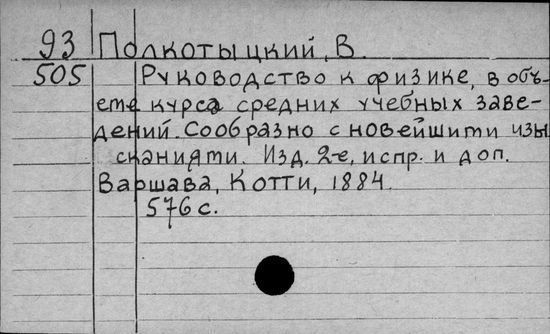 93 Полкотыцкий, В.
505 Руководство к физике, в объ-
еме курса средних учебных заве-
дений. Сообразно с новейшими изы
сканиями. Изд. 2-е, испр. и доп.
Варшава, Котти, 1884.
576 с.